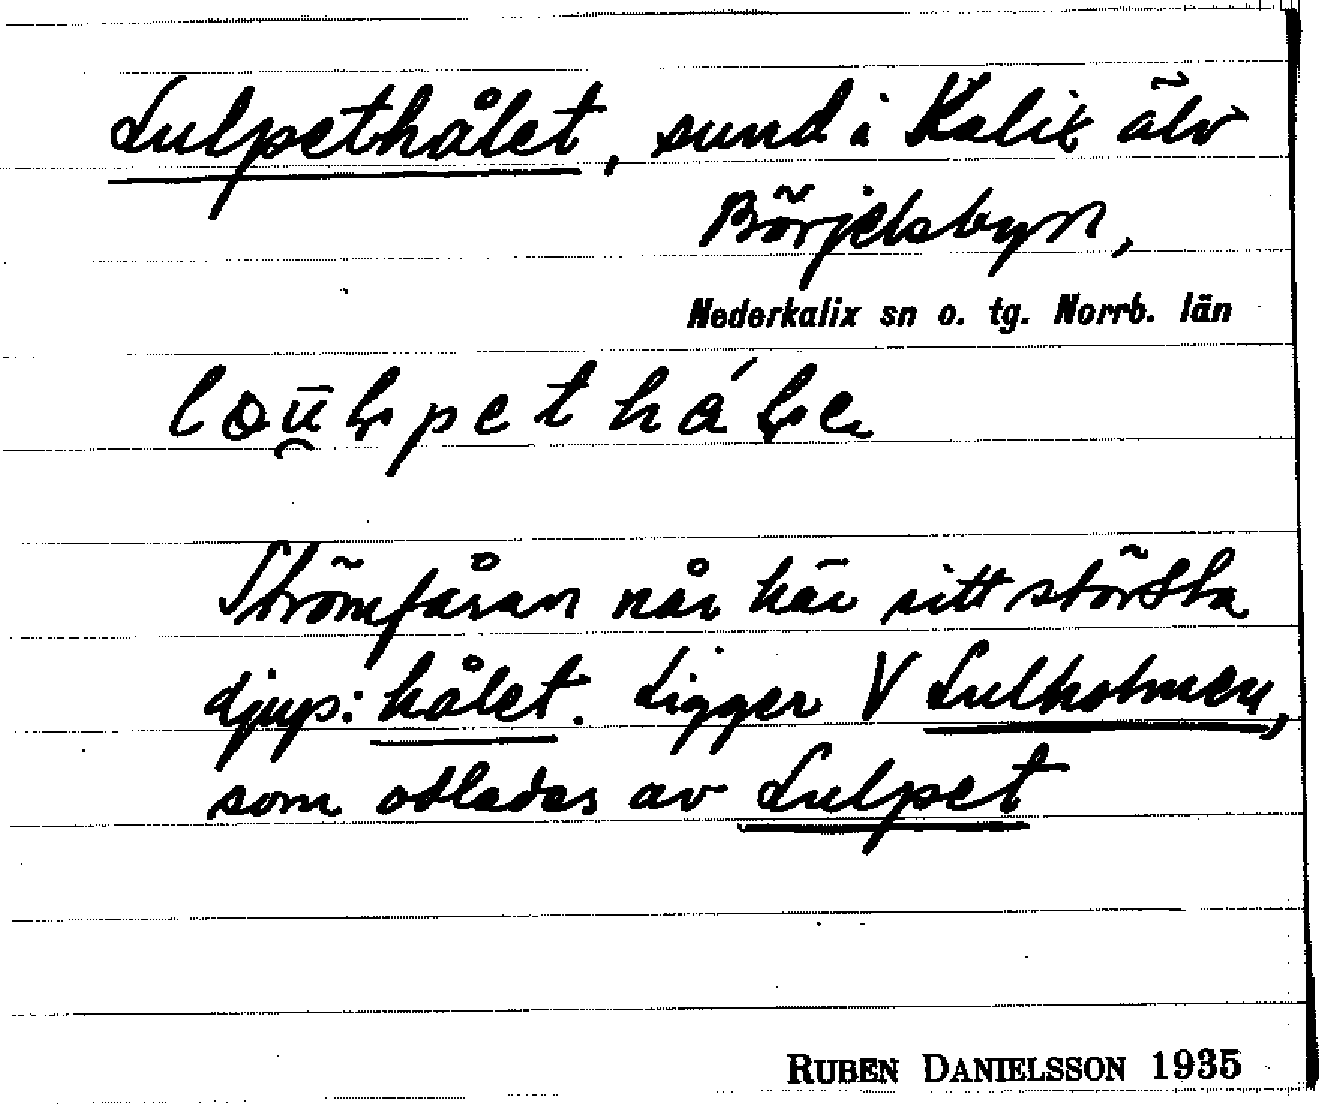 Lulpethålet, sund i Kalix älv
Börjelsbyn,
Nederkalix sn o. tg. Norrb. län
Strömfåran når här sitt största
djup: hålet. Ligger V Lulholmen,
som odlades av Lulpet
RUBEN DANIELSSON 1935